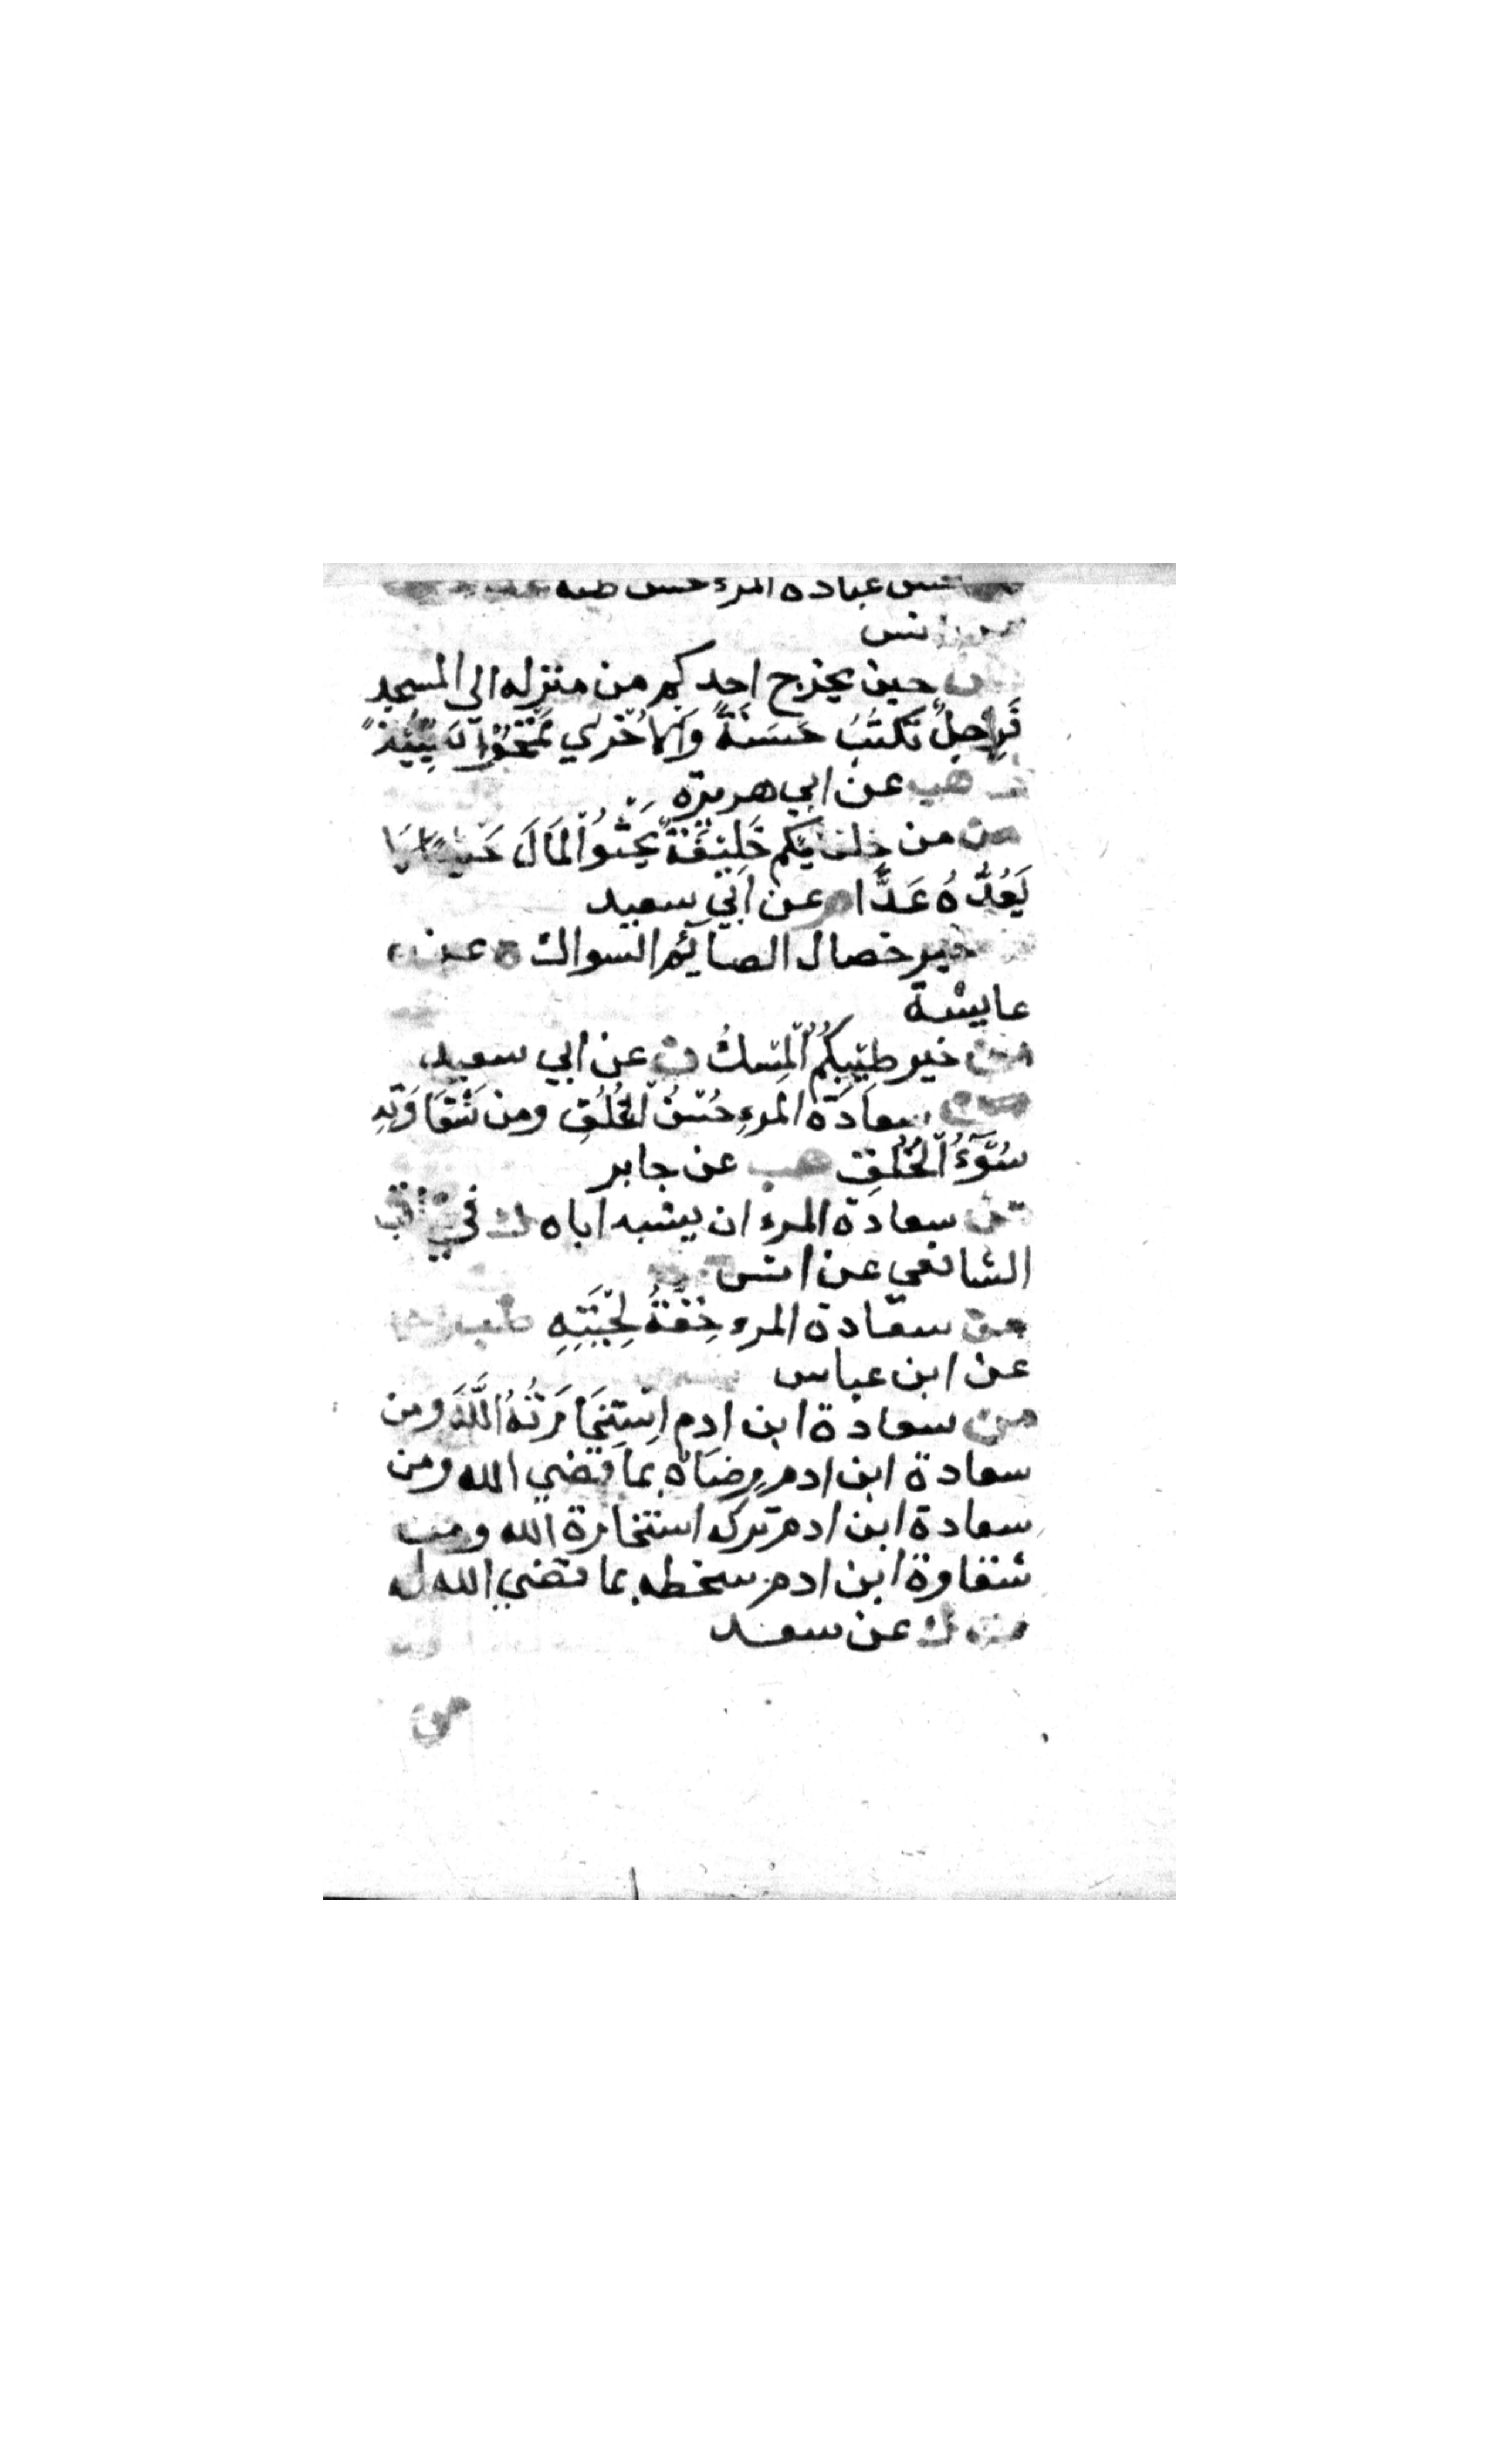 حسن عبادة المرء حسن ظنه
عن انس
من حين يخرج احدكم من منزله الي المسجد
فَرِجلٌ تكتُبُ حَسَنَةً وَالاُخرَي تَمْحُوْ سَيِّئَةً
هب عن ابي هريرة
من من خلفايكم خَلِيْفَةٌ يَحْثُو اْلمَالَ حَثْيًا لا
يَعُدُّهُ عَدًّا م عن اَبي سعيد
خير خصال الصايم السواك ه عن
عايشة
من خير طِيْبِكُمُ اْلمِسْكُ ن عن ابي سعيد
من سعادَة المرءِ حُسْنُ اْلخُلُقِ ومن شَقَاوَتِهِ
سُوْءُ اْلخُلُقِ هب عن جابر
من سعادة المرء ان يشبه اباه ك في مناقب
الشافعي عن انس
من سعادة المرء خِفَّةُ لِحْيَتِهِ طب
عن ابن عباس
من سعادة ابن ادم اِسْتِخَارَتُهُ اللَّهَ ومن
سعادة ابن ادم رِضَاهُ بما قضي الله ومن
سعادة ابن ادم تركه استخارة الله ومن
شقاوة ابن ادم سخطه بما قضي الله له
ت ك عن سعد
من